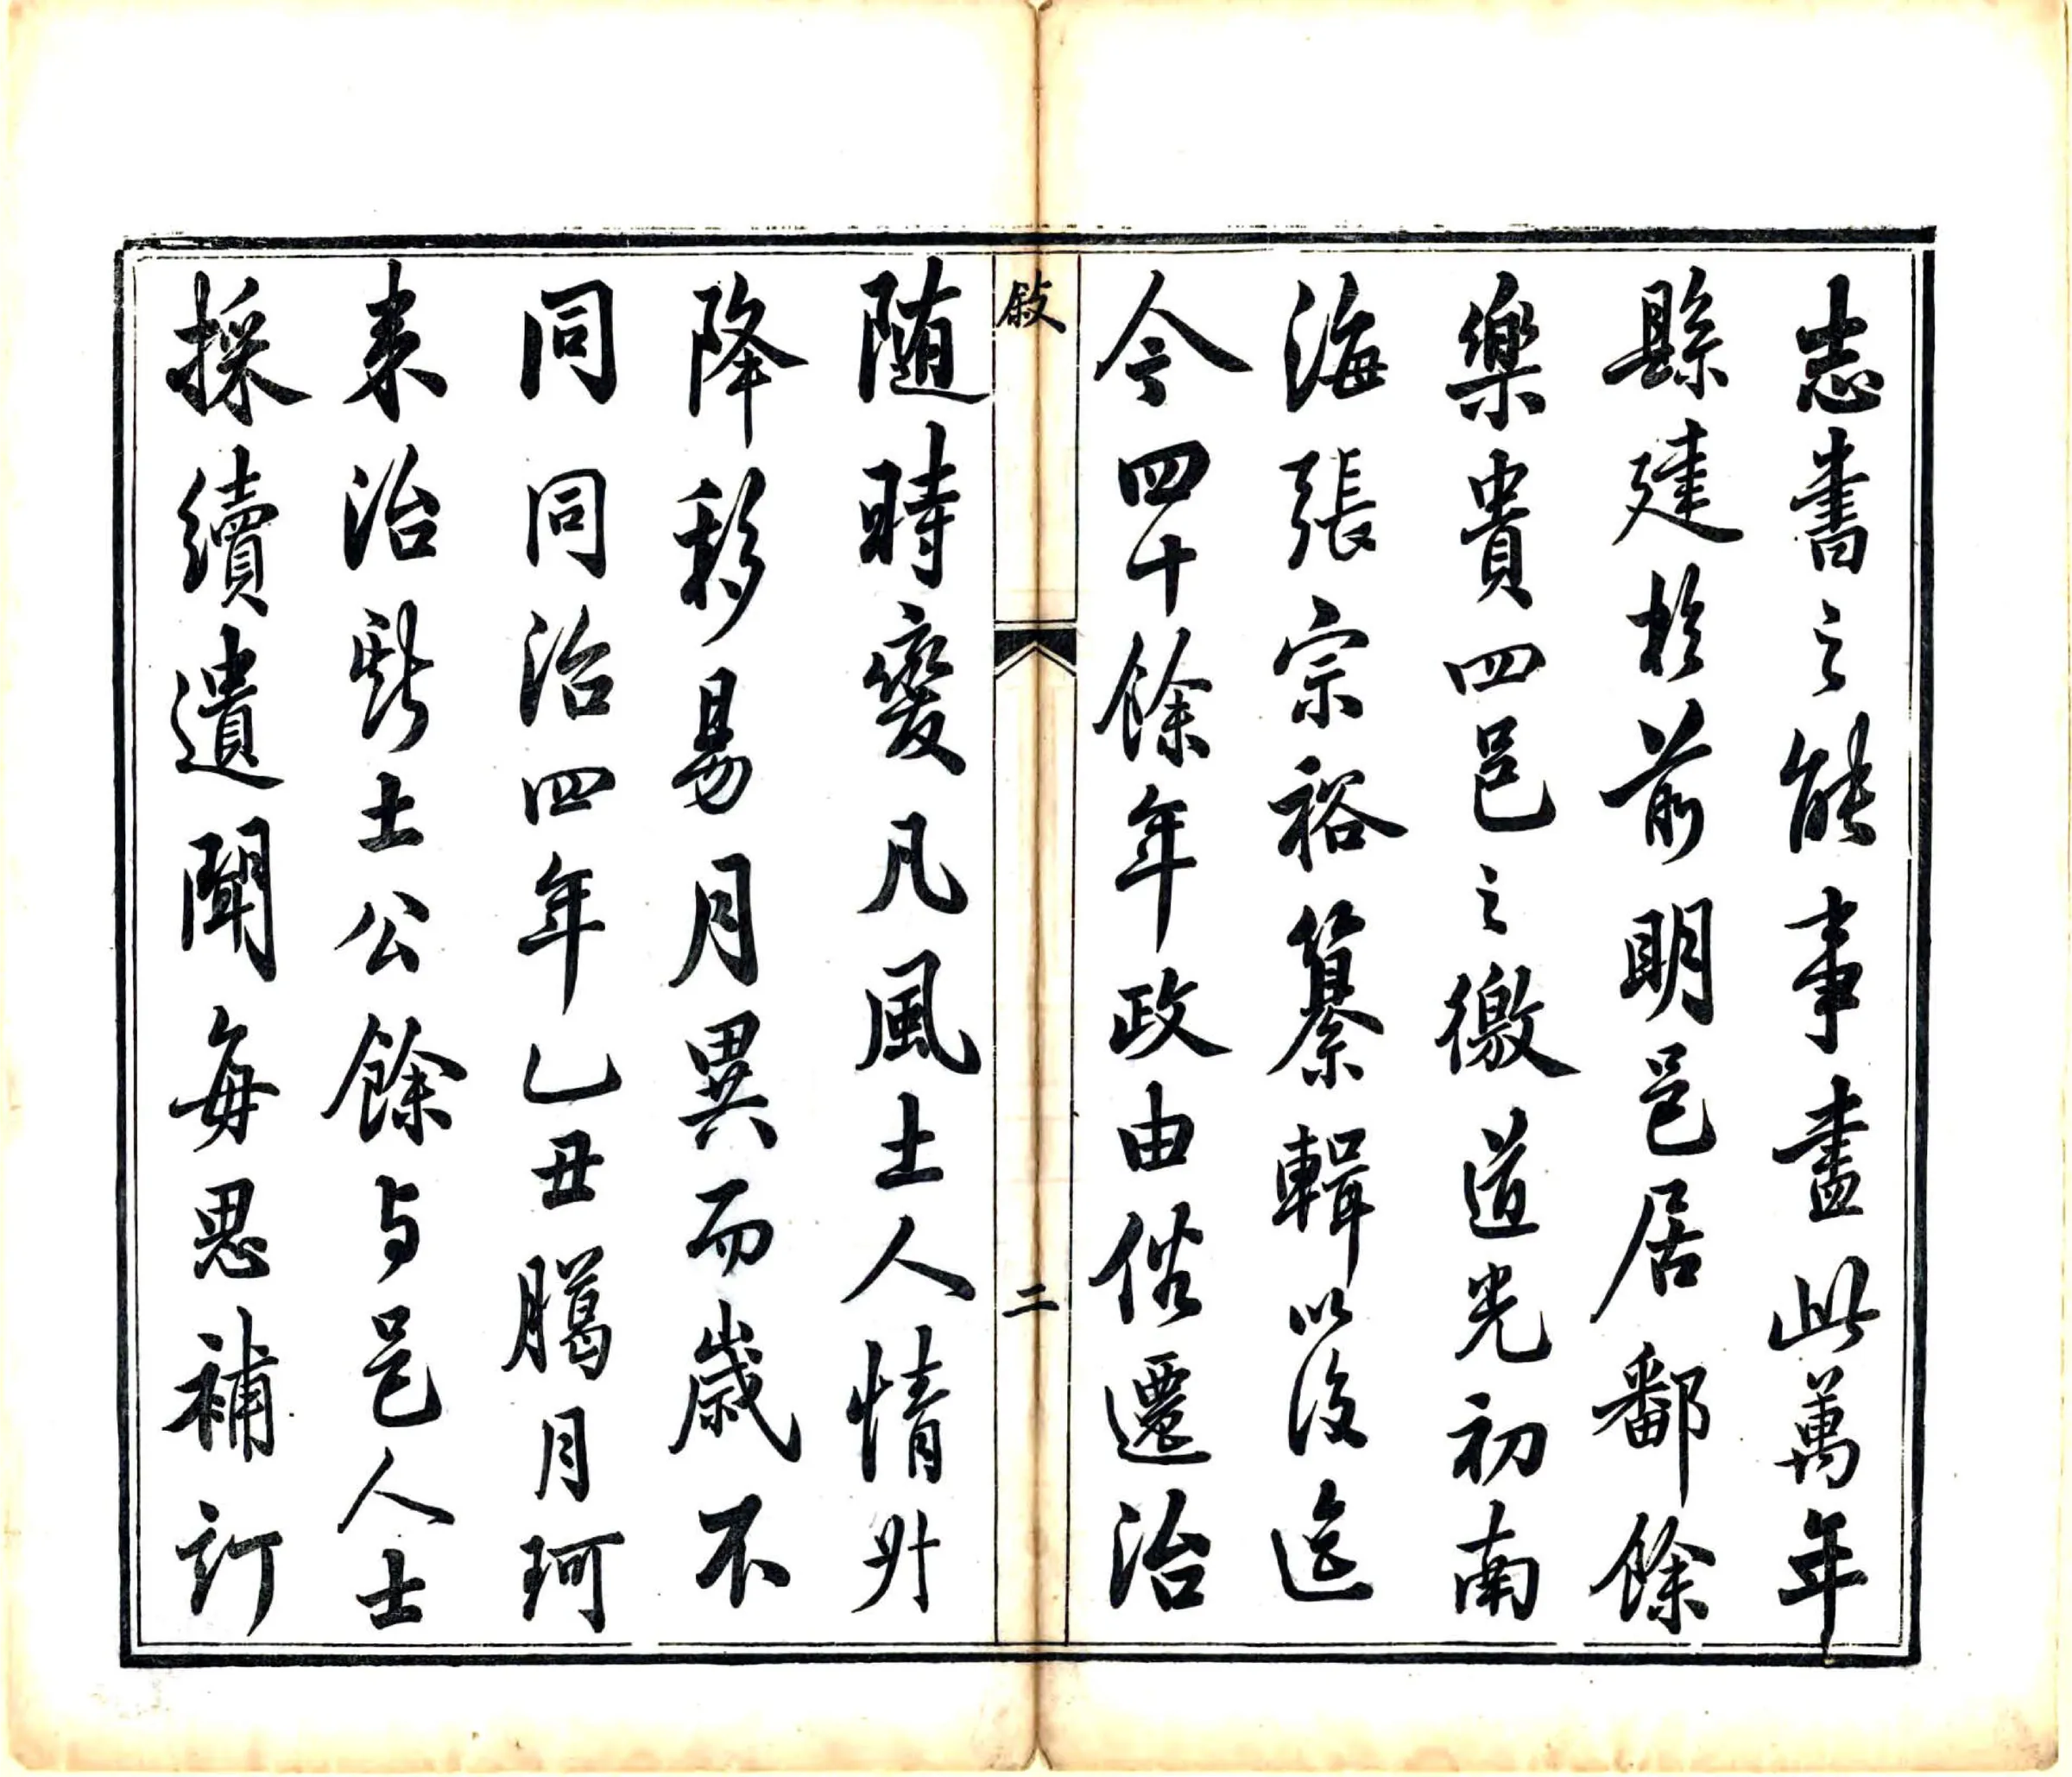 志書之能事盡此萬年
縣建於前明邑居鄱餘
樂貴四邑之徼道光初南
海張宗裕纂輯以後迄
今四十餘年政由俗遷治
敍
二
随時變凡風土人情升
降移易月異而歲不
同同治四年乙丑臈月珂
来治斯土公餘与邑人士
採續遺聞每思補訂